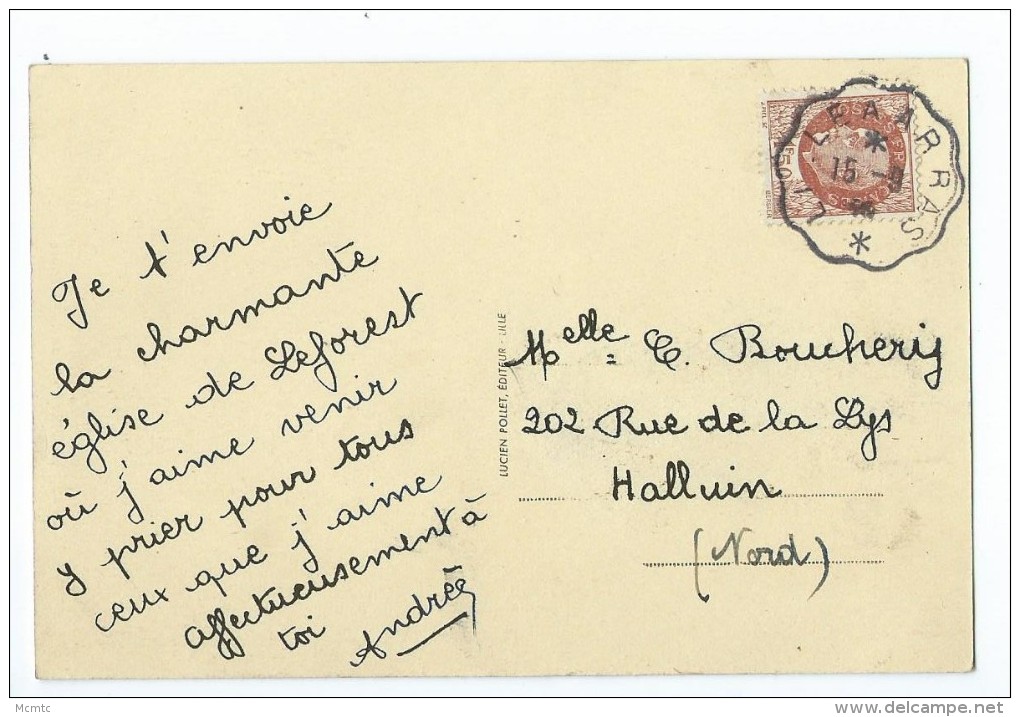 Je t'envoie
la charmante
église de Leforest
où j'aime venir
y prier pour tous
ceux que j'aime
affectueusement à
toi Andrée
LUCIEN POLLET, ÉDITEUR - LILLE
Melle = C. Boucherij
202 Rue de la Lys
Halluin
(Nord)
LILLE A ARRAS
15
1F50
Mcmtc